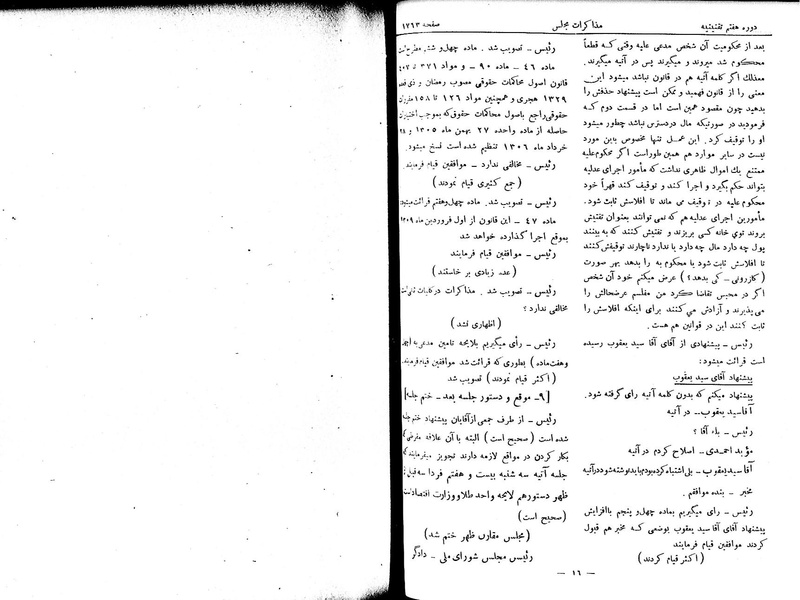 دوره هفتم تقنینیه
مذاکرات مجلس
صفحه ۱۷۶۳
بعد از محکومیت آن شخص مدعی علیه وقتی که قطعاً
محکوم شد میروند و میگیرند پس در آتیه میگیرند.
معذلك اگر کلمه آتیه هم در قانون نباشد میشود این
معنی را از قانون فهمید و ممکن است پیشنهاد حذفش را
بدهید چون مقصود همین است اما در قسمت دوم که
فرمودید در صورتیکه مال در دسترس نباشد چطور میشود
او را توقیف کرد. این عمل تنها مخصوص باین مورد
نیست در سایر موارد هم همین طور است اگر محکوم علیه
ممتنع يك اموال ظاهری نداشت که مأمور اجرای عدلیه
بتواند حکم بگیرد و اجرا کند و توقیف کند قهراً خود
محکوم علیه در توقیف می ماند تا افلاسش ثابت شود.
مأمورین اجرای عدلیه هم که نمی توانند بعنوان تفتیش
بروند توی خانه کسی بریزند و تفتیش کنند که به بینند
پول چه دارد مال چه دارد یا ندارد ناچارند توقیفش کنند
تا افلاسش ثابت شود یا محکوم به را بدهد بهر صورت
(کازرونی - کی بدهد؟) عرض میکنم خود آن شخص
اگر در محبس تقاضا کرد من مفلسم عرضحالش را
می پذیرند و آزادش می کنند برای اینکه افلاسش را
ثابت کنند این در قوانین هم هست.
رئیس - پیشنهادی از آقای آقا سید یعقوب رسیده
است قرائت میشود:
پیشنهاد آقای سید یعقوب
پیشنهاد میکنم که بدون کلمه آتیه رای گرفته شود.
آقا سید یعقوب - در آتیه
رئیس - بله آقا ؟
مؤید احمدی - اصلاح کردم در آتیه
آقا سید یعقوب - بلی اشتباه کرده بودم باید نوشته شود در آتیه
مخبر - بنده موافقم.
رئیس - رای میگیریم بماده چهل و پنجم باافزایش
پیشنهاد آقای آقا سید یعقوب بوضعی که مخبر هم قبول
کردند موافقین قیام فرمایند
(اکثر قیام کردند)
رئیس - تصویب شد. ماده چهل و ششم مطرح است
ماده ۴۶ - ماده ۹۰ - و مواد ۳۷۱ تا ۴۰۷
قانون اصول محاکمات حقوقی مصوب رمضان و ذی قعده
۱۳۲۹ هجری و همچنین مواد ۱۲۶ تا ۱۵۸ مقررات
حقوقی راجع باصول محاکمات حقوقی که بموجب اختیارات
حاصله از ماده واحده ۲۷ بهمن ماه ۱۳۰۵ و
خرداد ماه ۱۳۰۶ تنظیم شده است نسخ میشود.
رئیس - مخالفی ندارد - موافقین قیام فرمایند.
(جمع کثیری قیام نمودند)
رئیس - تصویب شد. ماده چهل و هفتم قرائت میشود:
ماده ۴۷ - این قانون از اول فروردین ماه ۱۳۰۹
بموقع اجرا گذارده خواهد شد
رئیس - موافقین قیام فرمایند
(عده زیادی بر خاستند)
رئیس - تصویب شد. مذاکرات در کلیات ثانی است
مخالفی ندارد ؟
(اظهاری نشد)
رئیس - رأی میگیریم بلایحه تامین مدعی به
وهفت ماده) بطوری که قرائت شد موافقین قیام فرمایند.
(اکثر قیام نمودند) تصویب شد
[۹- موقع و دستور جلسه بعد - ختم جلسه]
رئیس - از طرف جمعی از آقایان پیشنهاد ختم جلسه
شده است (صحیح است) البته با آن علاقه مفرطی که
بکار کردن در مواقع لازمه دارند تجویز میفرمایند که
جلسه آتیه سه شنبه بیست و هفتم فردا سه قبل از
ظهر دستور هم لایحه واحد طلا و وزارت اقتصاد است
(صحیح است)
(مجلس مقارن ظهر ختم شد)
رئیس مجلس شورای ملی - دادگر
- ۱۶ -